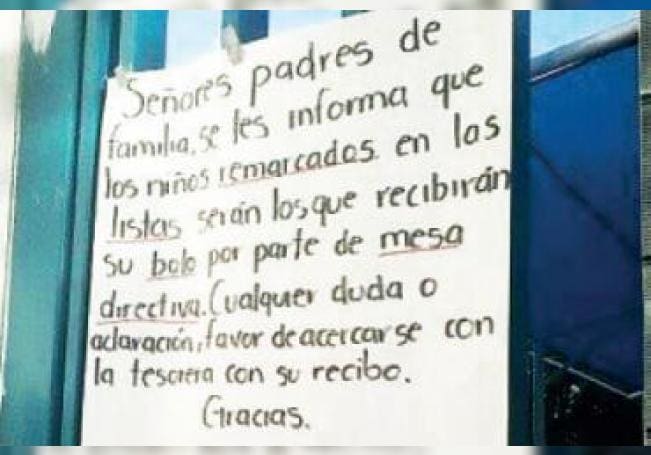 Señores padres de
familia, se les informa que
los niños remarcados en las
listas serán los que recibirán
su bolo por parte de mesa
directiva. Cualquier duda o
aclaración, favor de acercarse con
la tesorera con su recibo.
Gracias.